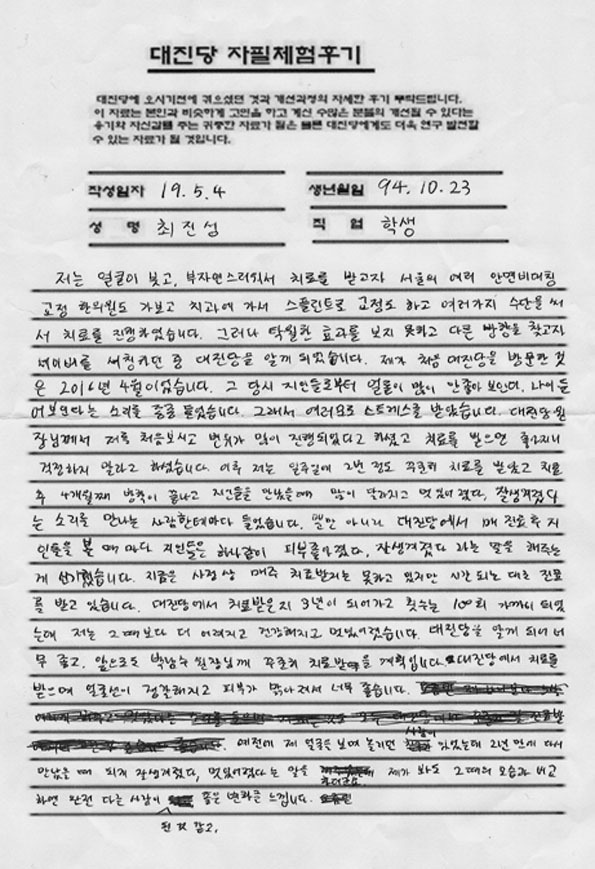 대진당 자필체험후기
대진당에 오시기전에 겪으셨던 것과 개선과정의 자세한 후기 부탁드립니다.
이 자료는 본인과 비슷하게 고민을 하고 계신 수많은 분들의 개선될 수 있다는
용기와 자신감을 주는 귀중한 자료가 됨은 물론 대진당에게도 더욱 연구 발전할
수 있는 자료가 될 것입니다.
작성일자 19.5.4 생년월일 94.10.23
성 명 최진성 직 업 학생
저는 얼굴이 붓고, 부자연스러워서 치료를 받고자 서울의 여러 안면비대칭
교정 한의원도 가보고 치과에 가서 스플린트로 교정도 하고 여러가지 수단을 써
서 치료를 진행하였습니다. 그러나 탁월한 효과를 보지 못하고 다른 방향을 찾고자
네이버를 써칭하던 중 대진당을 알게 되었습니다. 제가 처음 대진당을 방문한 것
은 2016년 4월이었습니다. 그 당시 지인들로부터 얼굴이 많이 안좋아 보인다, 나이 들
어보인다는 소리를 종종 들었습니다. 그래서 여러모로 스트레스를 받았습니다. 대진당 원
장님께서 저를 처음보시고 변위가 많이 진행되었다고 하셨고 치료를 받으면 좋아지니
걱정하지 말라고 하셨습니다. 이후 저는 일주일에 2번 정도 꾸준히 치료를 받았고 치료
후 4개월째 방학이 끝나고 지인들을 만났을때 많이 달라지고 멋있어졌다, 잘생겨졌다
는 소리를 만나는 사람한테마다 들었습니다. 뿐만 아니라 대진당에서 매 진료 후 지
인들을 볼 때 마다 지인들은 하나같이 피부좋아졌다, 잘생겨졌다 라는 말을 해주는
게 신기했습니다. 지금은 사정상 매주 치료받지는 못하고 있지만 시간 되는 대로 진료
를 받고 있습니다. 대진당에서 치료받은지 3년이 되어가고 횟수는 100회 가까이 되었
는데 저는 그때보다 더 어려지고 건강해지고 멋있어졌습니다. 대진당을 알게 되어 너
무 좋고, 앞으로도 박남수 원장님께 꾸준히 치료받을 계획입니다. 대진당에서 치료를
받으며 얼굴선이 정갈해지고 피부가 맑아져서 너무 좋습니다.
예전에 제 얼굴을 보며 놀리던 사람이 있었는데 2년 만에 다시
만났을 때 되게 잘생겨졌다, 멋있어졌다는 말을 하더군요. 제가 봐도 그때의 모습과 비교
하면 완전 다른 사람이 된 것 같고, 좋은 변화를 느낍니다.